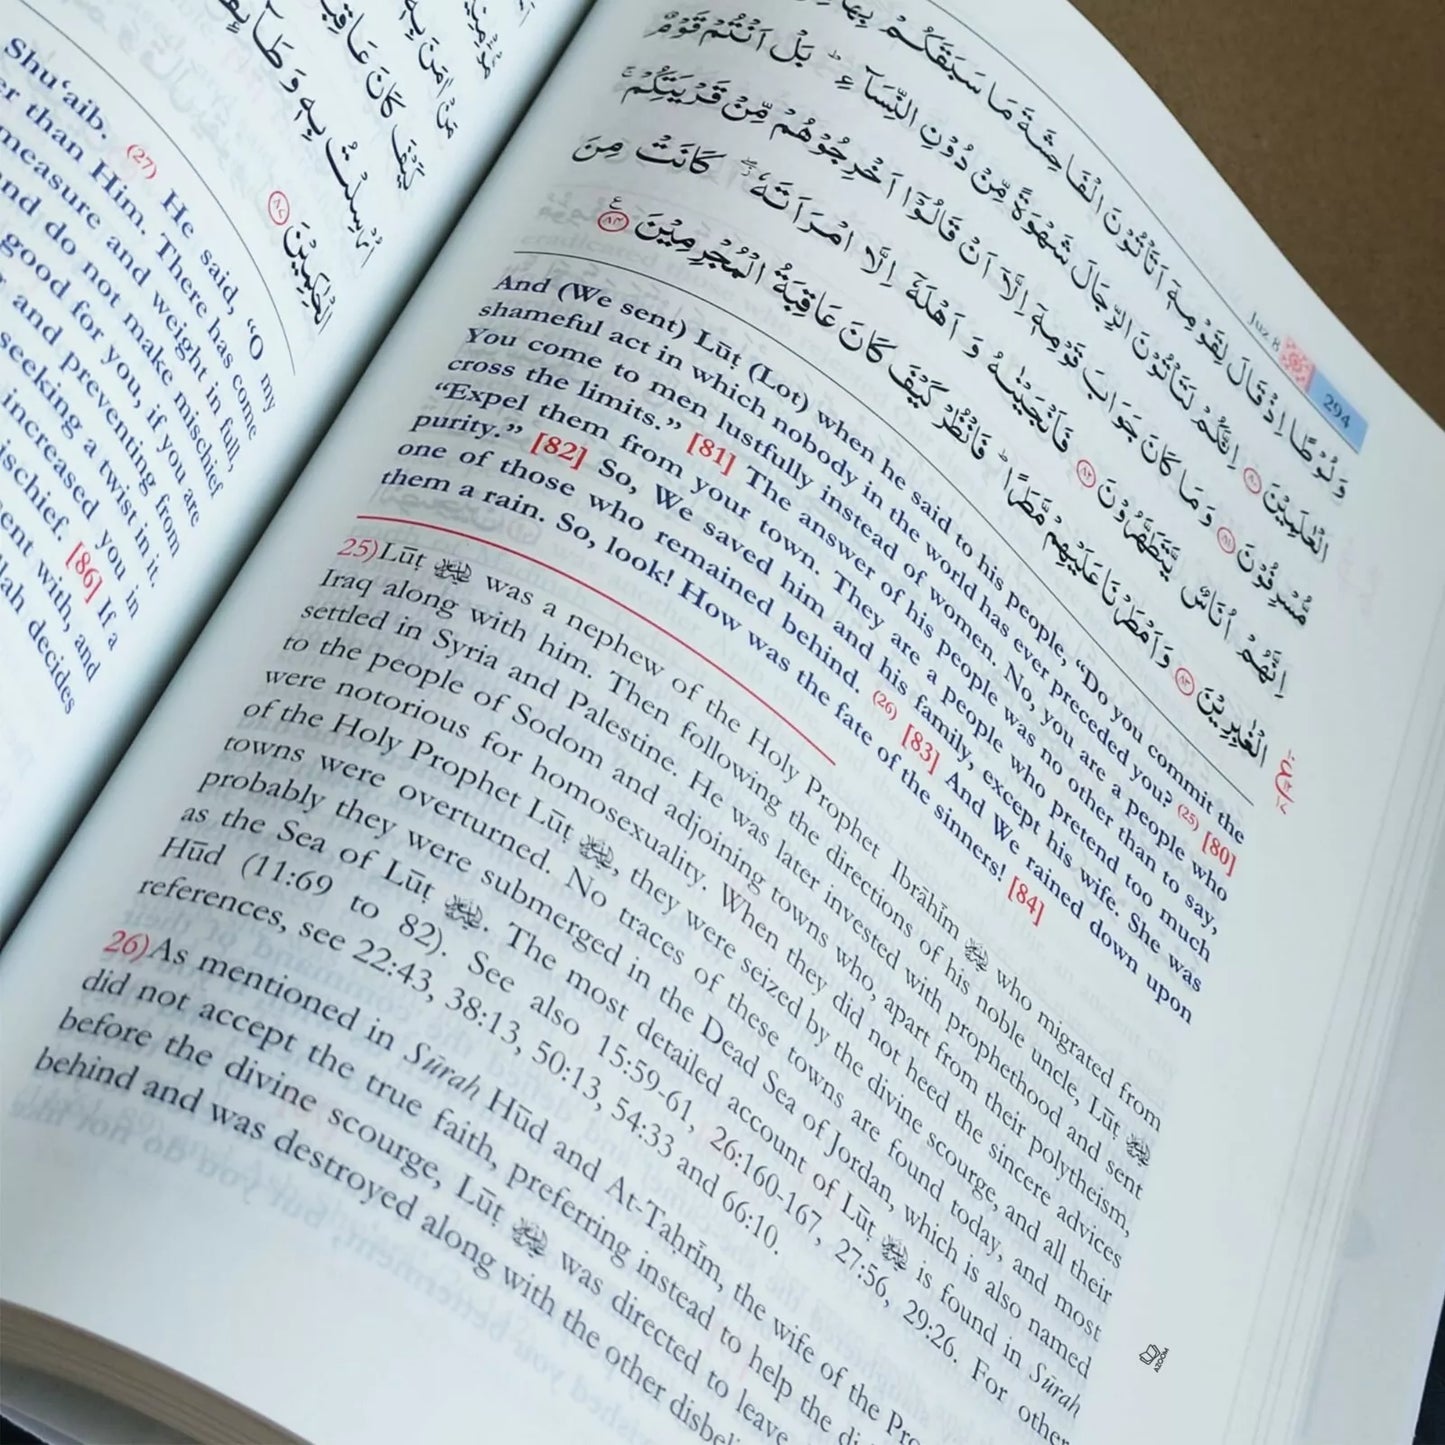 مِّنْ اٰمَنَ بِهٖ
كَيْفَ كَانَ عَاقِبَةُ
اُرْسِلْتُ بِهٖ وَطَآئِفَةٌ
الْحٰكِمِيْنَ ۸۷
Shu‘aib. (27) He said, “O my
er than Him. There has come
measure and weight in full,
nd do not make mischief
good for you, if you are
and preventing from
seeking a twist in it.
increased you in
ischief. [86] If a
ent with, and
lah decides
Juz 8
294
وَلُوْطًا اِذْ قَالَ لِقَوْمِهٖۤ اَتَاْتُوْنَ الْفَاحِشَةَ مَا سَبَقَكُمْ بِهَا
الْعٰلَمِيْنَ ۸۰ اِنَّكُمْ لَتَاْتُوْنَ الرِّجَالَ شَهْوَةً مِّنْ دُوْنِ النِّسَآءِ ؕ بَلْ اَنْتُمْ قَوْمٌ
مُّسْرِفُوْنَ ۸۱ وَمَا كَانَ جَوَابَ قَوْمِهٖۤ اِلَّاۤ اَنْ قَالُوْۤا اَخْرِجُوْهُمْ مِّنْ قَرْيَتِكُمْ ۚ
اِنَّهُمْ اُنَاسٌ يَّتَطَهَّرُوْنَ ۸۲ فَاَنْجَيْنٰهُ وَاَهْلَهٗۤ اِلَّا امْرَاَتَهٗ ۖ كَانَتْ مِنَ
الْغٰبِرِيْنَ ۸۳ وَاَمْطَرْنَا عَلَيْهِمْ مَّطَرًا ؕ فَانْظُرْ كَيْفَ كَانَ عَاقِبَةُ الْمُجْرِمِيْنَ ۸۴
And (We sent) Lūṭ (Lot) when he said to his people, “Do you commit the
shameful act in which nobody in the world has ever preceded you? (25) [80]
You come to men lustfully instead of women. No, you are a people who
cross the limits.” [81] The answer of his people was no other than to say,
“Expel them from your town. They are a people who pretend too much
purity.” [82] So, We saved him and his family, except his wife. She was
one of those who remained behind. (26) [83] And We rained down upon
them a rain. So, look! How was the fate of the sinners! [84]
25)Lūṭ عليه السلام was a nephew of the Holy Prophet Ibrāhīm عليه السلام who migrated from
Iraq along with him. Then following the directions of his noble uncle, Lūṭ عليه السلام
settled in Syria and Palestine. He was later invested with prophethood and sent
to the people of Sodom and adjoining towns who, apart from their polytheism,
were notorious for homosexuality. When they did not heed the sincere advices
of the Holy Prophet Lūṭ عليه السلام, they were seized by the divine scourge, and all their
towns were overturned. No traces of these towns are found today, and most
probably they were submerged in the Dead Sea of Jordan, which is also named
as the Sea of Lūṭ عليه السلام. The most detailed account of Lūṭ عليه السلام is found in Sūrah
Hūd (11:69 to 82). See also 15:59-61, 26:160-167, 27:56, 29:26. For other
references, see 22:43, 38:13, 50:13, 54:33 and 66:10.
26)As mentioned in Sūrah Hūd and At-Taḥrīm, the wife of the
did not accept the true faith, preferring instead to help the
before the divine scourge, Lūṭ عليه السلام was directed to leave
behind and was destroyed along with the other
AZOOM